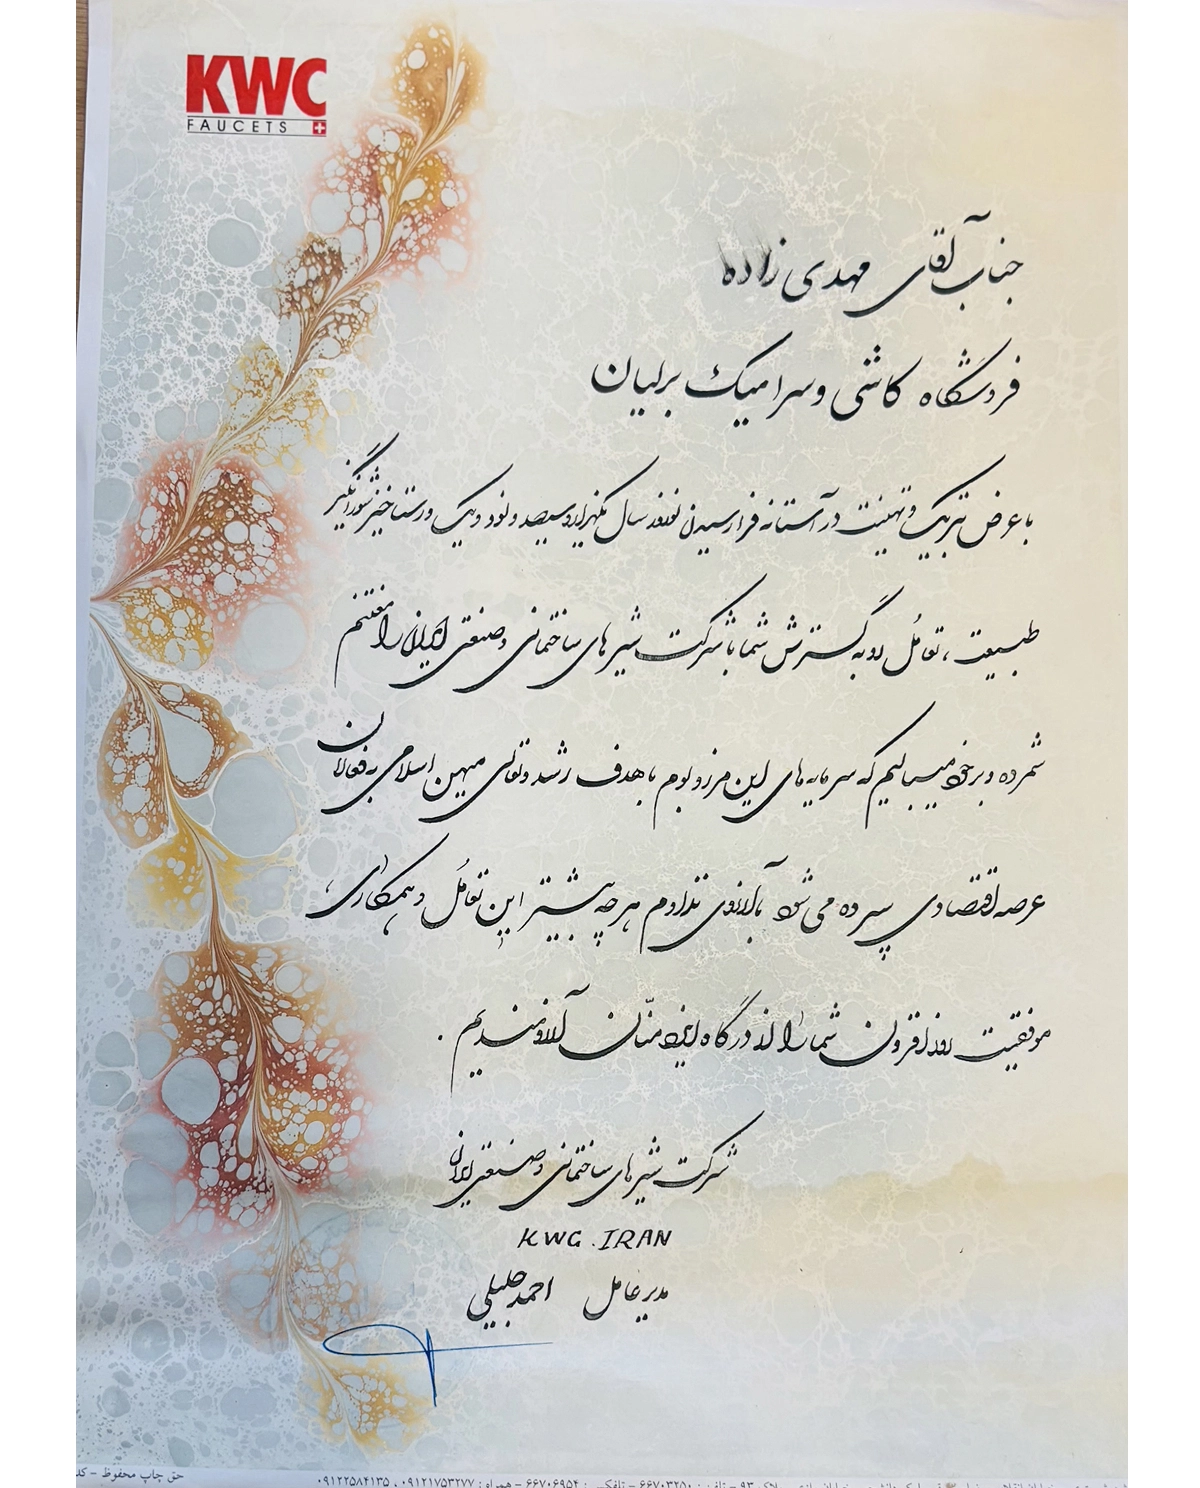 KWC
FAUCETS
جناب آقای مهدی زاده
فروشگاه کاشی و سرامیک برلیان
با عرض تبریک و تهنیت در آستانه فرارسیدن نوروز سال یکهزار و سیصد و نود و یک و رستاخیز شورانگیز
طبیعت، تعامل رو به گسترش شما با شرکت شیرهای ساختمانی و صنعتی ایران را مغتنم
شمرده و برخود میبالیم که سرمایه های این مرز و بوم با هدف رشد و تعالی میهن اسلامی به فعالان
عرصه اقتصادی سپرده می شود با آرزوی تداوم هر چه بیشتر این تعامل و همکاری،
موفقیت روزافزون شما را از درگاه ایزد منّان آرزومندیم .
شرکت شیرهای ساختمانی و صنعتی ایران
KWC . IRAN
مدیر عامل احمد جلیلی
حق چاپ محفوظ - کد
پلاک ۹۳ - تلفن: ۶۶۷۰۳۲۵۰ - تلفکس: ۶۶۷۰۶۹۵۴ - همراه: ۰۹۱۲۱۷۵۳۲۷۷ ، ۰۹۱۲۲۵۸۴۱۳۵